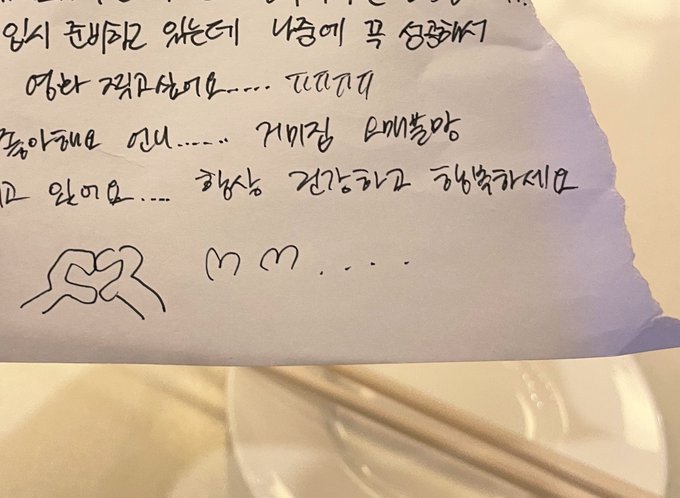 입시 준비하고 있는데 나중에 꼭 성공해서
영화 찍고싶어요..... ㅠㅠㅠㅠ
좋아해요 언니...... 거미집 오매불망
고 있어요.... 항상 건강하고 행복하세요
♡ ♡ ....